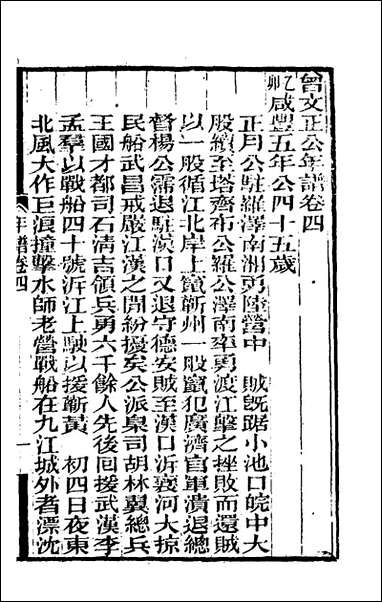 曾文正公年譜卷四
乙卯咸豐五年公四十五歲
正月公駐羅澤南湘勇陸營中　賊旣踞小池口皖中大
股續至塔齊布公羅公澤南率勇渡江擊之挫敗而還賊
以一股循江北岸上竄蘄州一股竄犯廣濟官軍潰退總
督楊公霈退駐漢口又退守德安賊至漢口泝襄河大掠
民船武昌戒嚴江漢之間紛擾矣公派臬司胡林翼總兵
王國才都司石清吉領兵勇六千餘人先後回援武漢李
孟羣以戰船四十號泝江上駛以援蘄黃　初四日夜東
北風大作巨浪撞擊水師老營戰船在九江城外者漂沈
年譜卷四
一